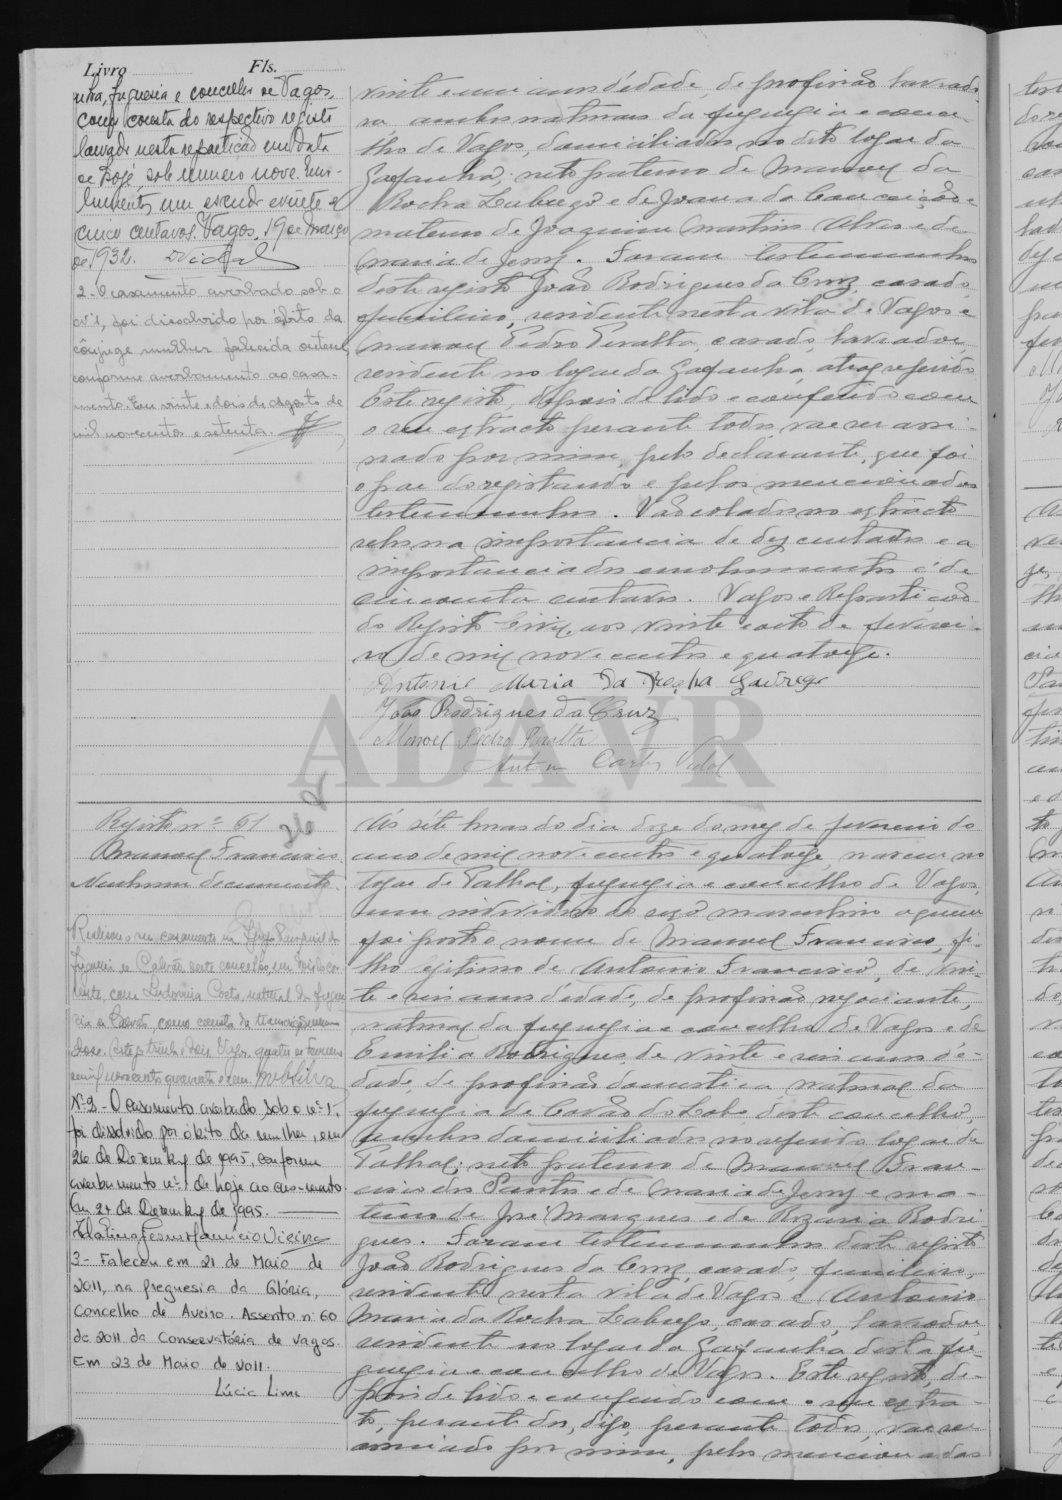 Livro Fls.
nha, freguesia e concelho de Vagos,
como consta do respectivo registo
lavrado nesta repartição em data
de hoje, sob numero nove. Emo-
lumentos um escudo e vinte e
cinco centavos. Vagos, 19 de Março
de 1932. Vidal
2- O casamento averbado sob o
nº 1, foi dissolvido por óbito da
cônjuge mulher falecida ontem,
conforme averbamento ao casa-
mento. Em vinte e dois de Agosto de
mil novecentos e setenta.
vinte e um anos d'edade, de profissão lavrado-
ra ambos naturais da freguesia e conce-
lho de Vagos, domiciliados no dito logar da
Gafanha; neto paterno de Manoel da
Rocha Labrego e de Joana da Conceição e
materno de Joaquim Martins Alves e de
Maria de Jesus. Foram testemunhas
deste registo João Rodrigues da Cruz, casado,
funileiro, residente nesta vila de Vagos e
Manoel Pedro Peralta, casado, lavrador,
residente no logar da Gafanha, atraz referido
Este registo, depois de lido e conferido com
o seu extracto perante todos vae ser assi-
nado por mim, pelo declarante, que foi
o pae do registando e pelos mencionados
testemunhas. Vão colados no extracto
selos na importancia de dez centavos e a
importancia dos emolumentos é de
cincoenta centavos. Vagos e Repartição
do Registo Civil, aos vinte e oito de feverei-
ro de mil novecentos e quatorze.
Antonio Maria da Rocha Labrego
João Rodrigues da Cruz
Manoel Pedro Peralta
Carlos Vidal
ADAVR
Registo nº 61
Manoel Francisco
Nenhum documento.
Realisou o seu casamento na
freguesia de Calvão deste concelho, em
com Ludovina Costa, natural da fregue-
sia de Covão, como consta
Vagos, quatro de Fevereiro
de mil novecentos quarenta e um. Silva
Nº 2 - O casamento averbado sob o nº 1,
foi dissolvido por óbito da mulher, em
26 de Dezembro de 1995, conforme
averbamento nº 1 de hoje ao casamento.
Em 27 de Dezembro de 1995.
3- Faleceu em 21 de Maio de
2011, na freguesia da Glória,
concelho de Aveiro. Assento nº 60
de 2011 da Conservatória de Vagos.
Em 23 de Maio de 2011.
Lúcia Lima
Ás sete horas do dia doze do mez de fevereiro do
ano de mil novecentos e quatorze, nasceu no
logar de Palhal, freguesia e concelho de Vagos,
um individuo do sexo masculino a quem
foi posto o nome de Manoel Francisco, fi-
lho legitimo de Antonio Francisco, de vin-
te e seis anos d'edade, de profissão negociante,
natural da freguesia e concelho de Vagos e de
Emilia Rodrigues, de vinte e seis anos d'e-
dade de profissão domestica natural da
freguesia de Covão do Lobo deste concelho,
ambos domiciliados no referido logar de
Palhal; neto paterno de Manoel Fran-
cisco dos Santos e de Maria de Jesus e ma-
terno de José Marques e de Rozaria Rodri-
gues. Foram testemunhas deste registo
João Rodrigues da Cruz, casado, funileiro,
residente nesta vila de Vagos e Antonio
Maria da Rocha Labrego, casado, lavrador,
residente no logar da Gafanha desta fre-
guesia e concelho de Vagos. Este registo, de-
pois de lido e conferido com o seu extra-
to, perante dos, digo, perante todos, vae ser
assinado por mim, pelos mencionadas